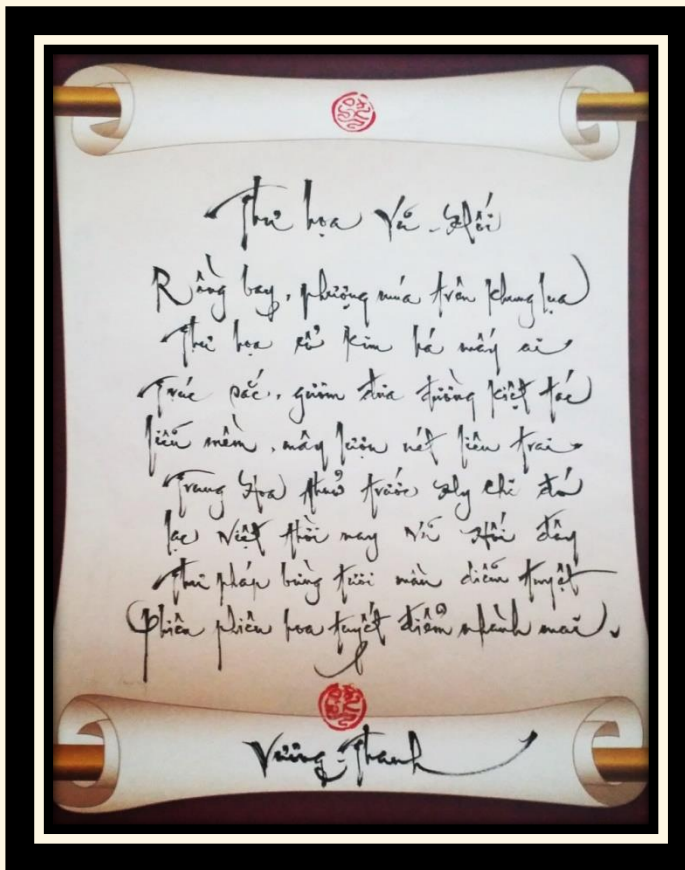 Thư họa Vũ-Hối
Rồng bay, phượng múa trên khung lụa
Thư họa cổ kim há mấy ai
Trúc sắc, gươm đưa đường kiệt tác
liễu mềm, mây lượn nét liêu trai
Trung Hoa thuở trước Hy Chi đó
lạc Việt thời nay Vũ Hối đây
Thư pháp bừng tươi màn diễm tuyệt
Phiên phiên hoa tuyết điểm nhành mai.
Vương-Thanh